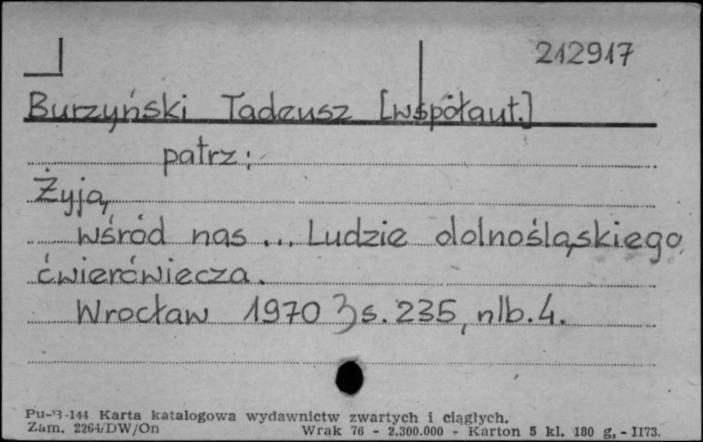 212917
Burzyński Tadeusz [współaut.]
patrz:
Żyją
wśród nas ... Ludzie dolnośląskiego
ćwierćwiecza.
Wrocław 1970 s. 235, nlb. 4.
Pu-B-144 Karta katalogowa wydawnictw zwartych i ciągłych.
Zam. 2264/DW/On Wrak 76 - 2.300.000 - Karton 5 kl. 180 g, - II73.